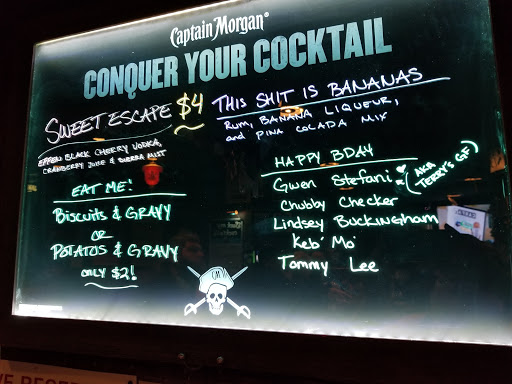 Captain Morgan®
CONQUER YOUR COCKTAIL
SWEET ESCAPE $4
EFFEN BLACK CHERRY VODKA,
CRANBERRY JUICE & SIERRA MIST
THIS SHIT IS BANANAS
RUM, BANANA LIQUEUR,
and PINA COLADA MIX
EAT ME!
BISCUITS & GRAVY
OR
POTATOS & GRAVY
ONLY $2!
HAPPY BDAY
Gwen Stefani (AKA
TERRY'S GF)
Chubby Checker
Lindsey BUCKINGHAM
Keb' Mo'
Tommy Lee
CM